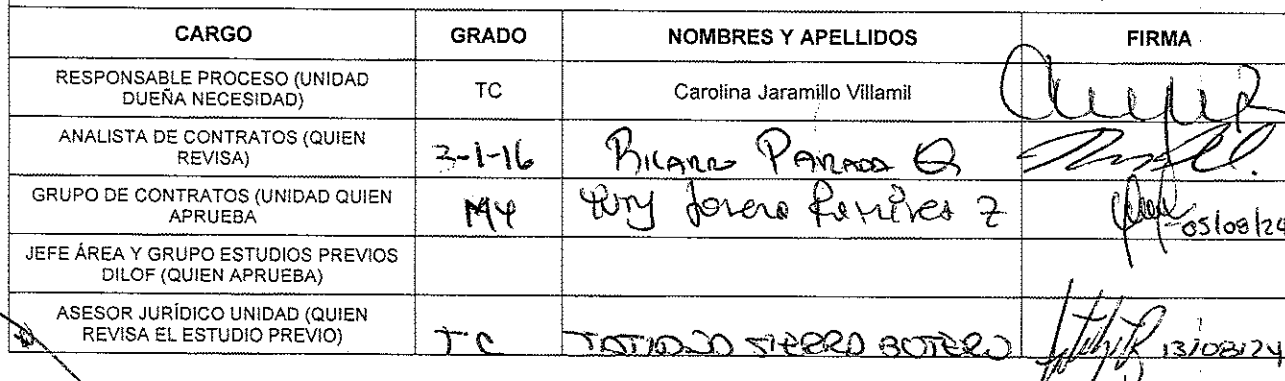 CARGO GRADO NOMBRES Y APELLIDOS FIRMA
RESPONSABLE PROCESO (UNIDAD
DUEÑA NECESIDAD) TC Carolina Jaramillo Villamil
ANALISTA DE CONTRATOS (QUIEN
REVISA) 3-1-16 RICARDO PARADA Q
GRUPO DE CONTRATOS (UNIDAD QUIEN
APRUEBA MY Yury Ramirez Z 05/08/24
JEFE ÁREA Y GRUPO ESTUDIOS PREVIOS
DILOF (QUIEN APRUEBA)
ASESOR JURÍDICO UNIDAD (QUIEN
REVISA EL ESTUDIO PREVIO) TC TATIANA SIERRA BOTERO 13/08/24